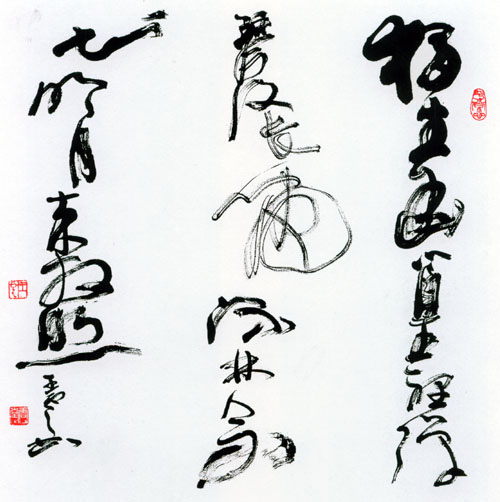 独坐幽篁里弹
琴复长啸深林人不
知明月来相照